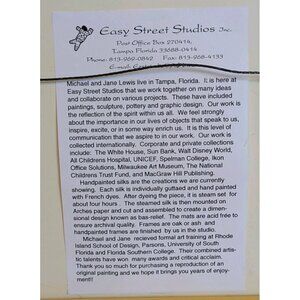 Easy Street Studios Inc.
Post Office Box 270414,
Tampa Florida 33688-0414
Phone: 813-969-0842 Fax: 813-968-4133
E-mail:
Michael and Jane Lewis live in Tampa, Florida. It is here at
Easy Street Studios that we work together on many ideas
and collaborate on various projects. These have included
paintings, sculpture, pottery and graphic design. Our work is
the reflection of the spirit within us all. We feel strongly
about the importance in our lives of objects that speak to us,
inspire, excite, or in some way enrich us. It is this level of
communication that we aspire to in our work. Our work is
collected internationally. Corporate and private collections
include: The White House, Sun Bank, Walt Disney World,
All Childrens Hospital, UNICEF, Spelman College, Ikon
Office Solutions, Milwaukee Art Museum, The National
Childrens Trust Fund, and MacGraw Hill Publishing.
Handpainted silks are the creations we are currently
showing. Each silk is individually guttaed and hand painted
with French dyes. After dyeing the piece, it is steam set for
about four hours. The steamed silk is then mounted on
Arches paper and cut and assembled to create a dimen-
sional design known as bas-relief. The mats are acid free to
ensure archival quality. Frames are oak or ash and
handpainted frames are finished by us in the studio.
Michael and Jane recieved formal art training at Rhode
Island School of Design, Parsons, University of South
Florida and Florida Southern College. Their combined artis-
tic talents have won many awards and critical acclaim.
Thank you so much for purchasing a reproduction of an
original painting and we hope it brings you years of enjoy-
ment!!